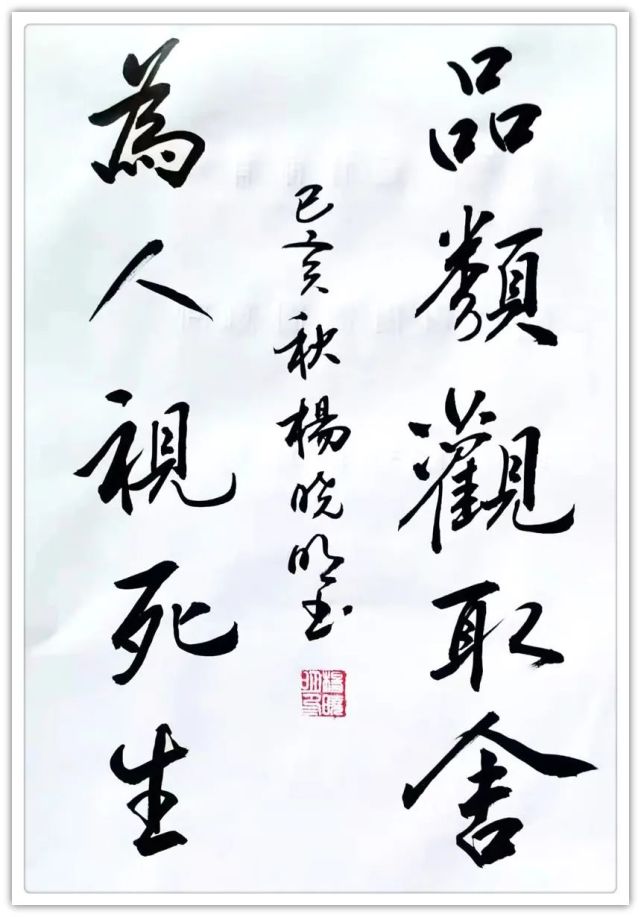 品類觀取舍
為人視死生
己亥秋楊晓明